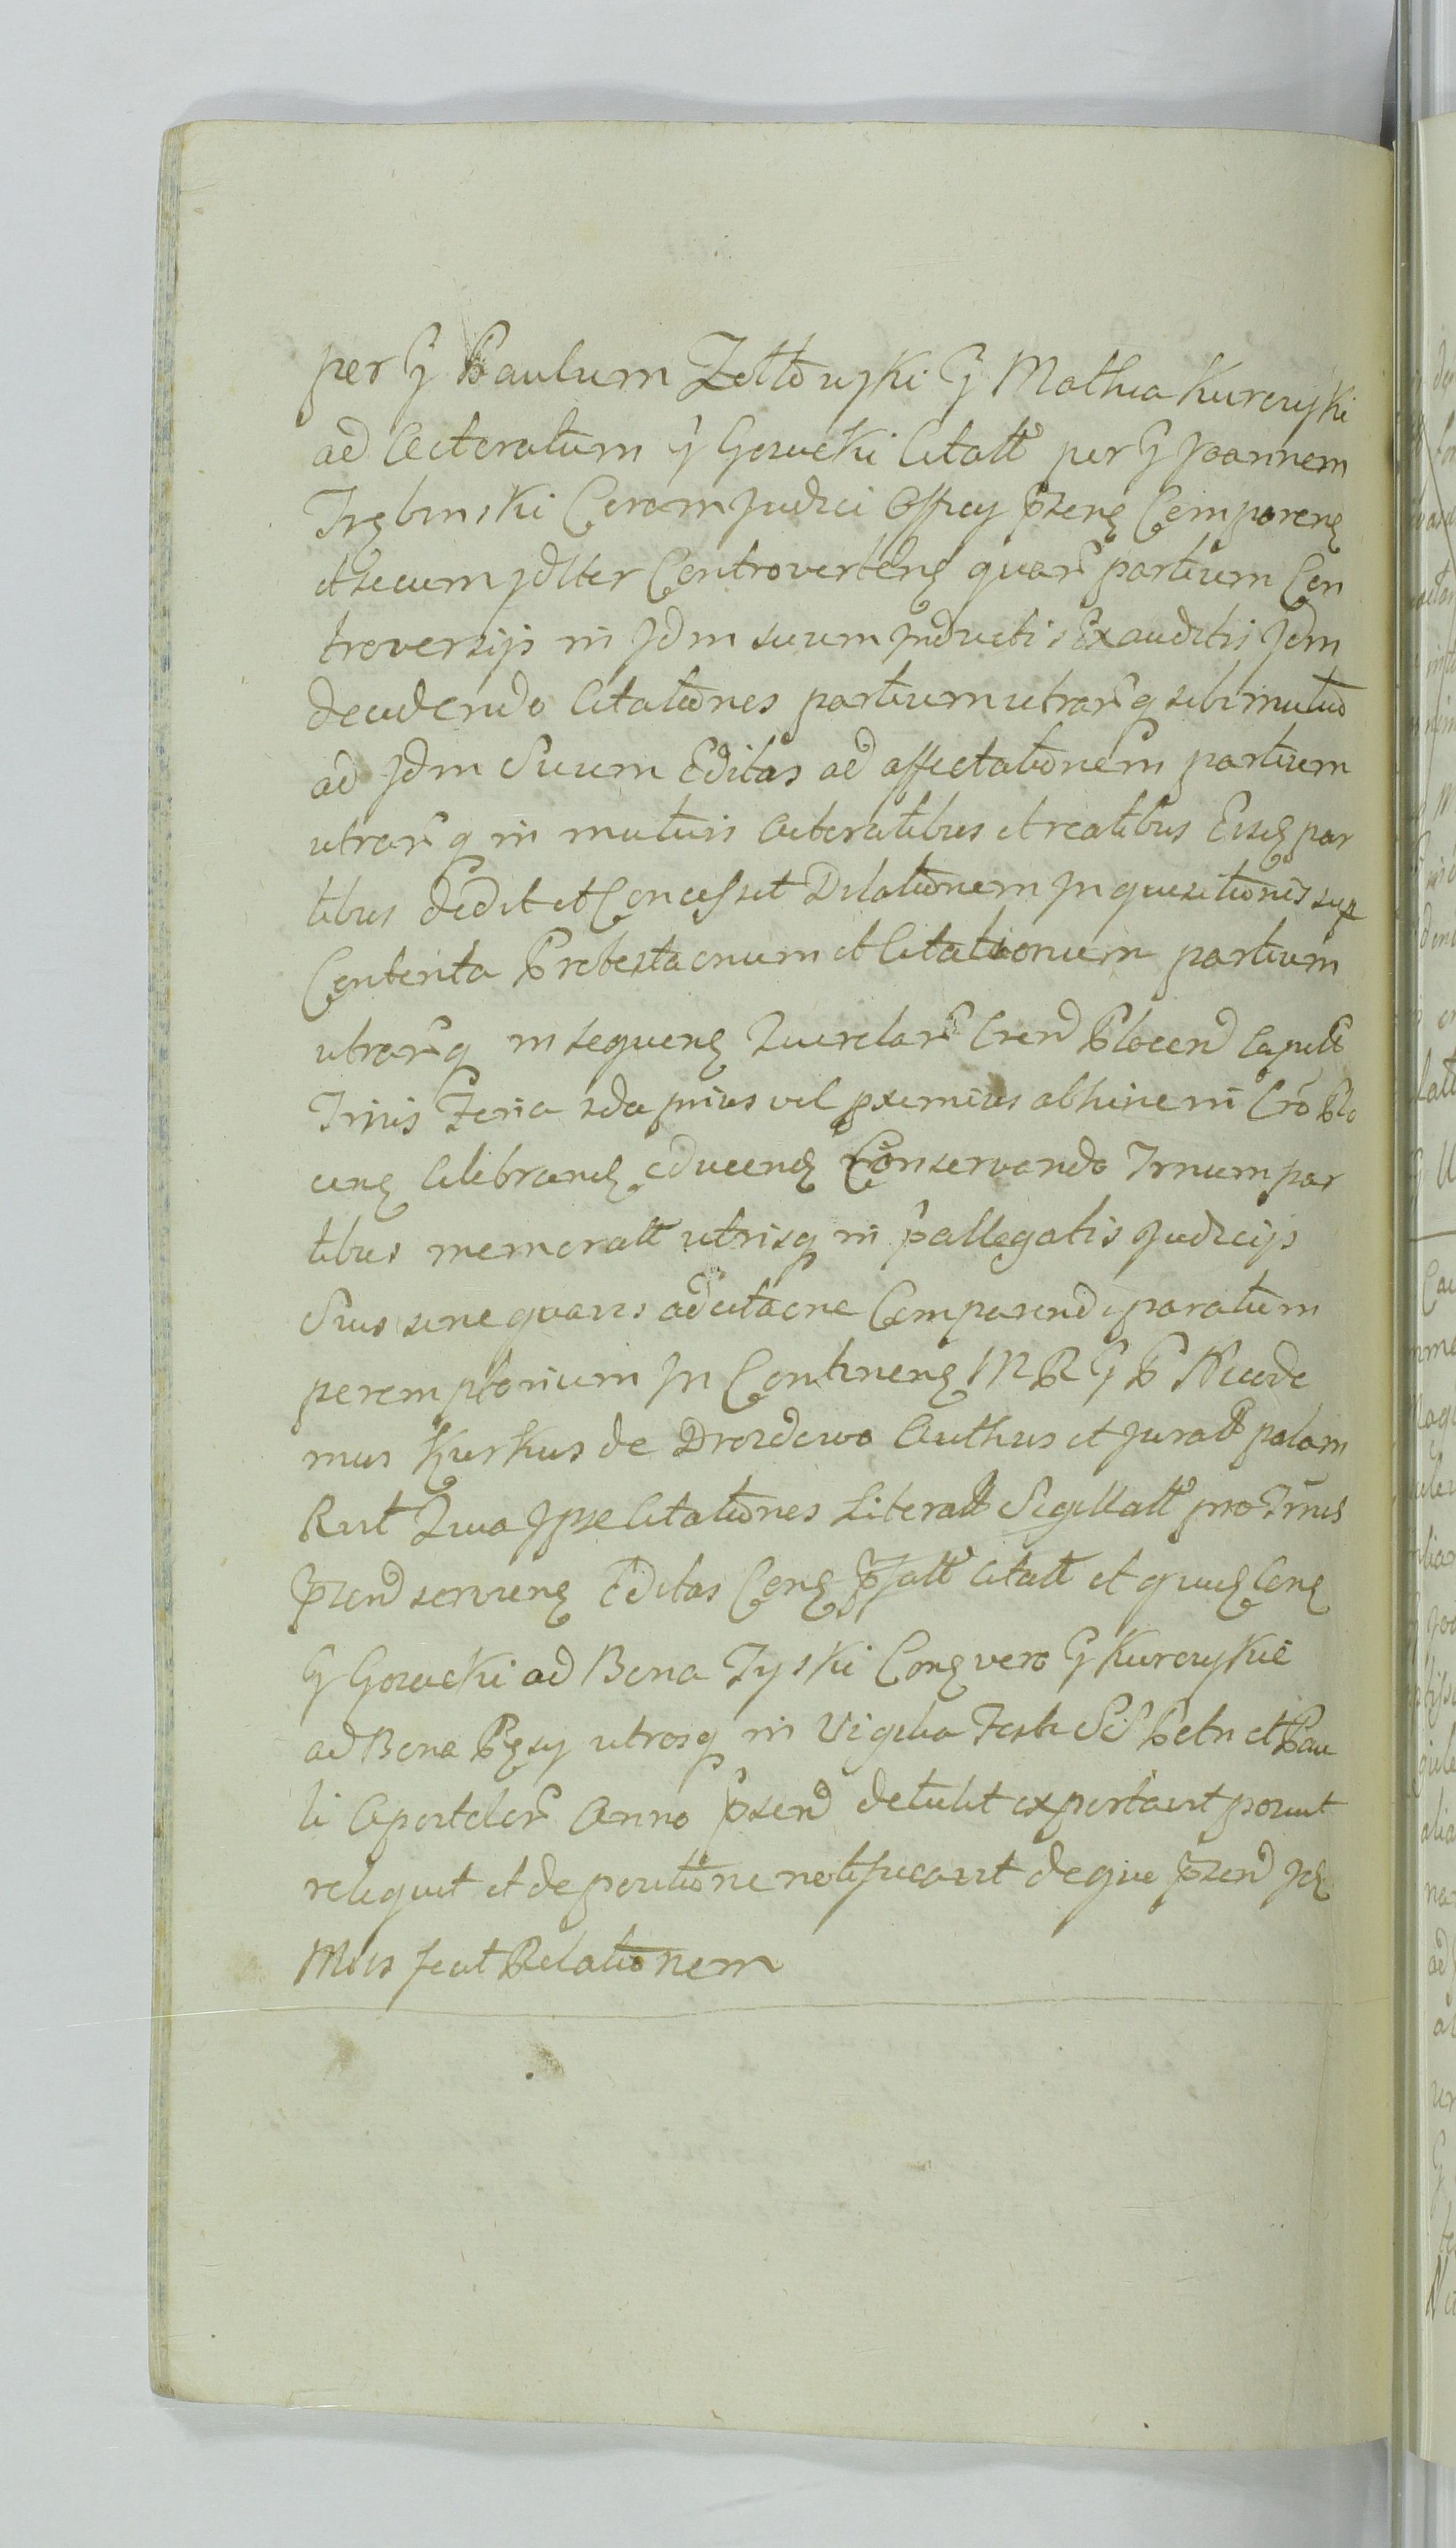 per G Paulum Zołtowyki G Mathia Kurcuyki
ad Acteratum G Gorucki Citatt per G Joannem
Trębinski Coram Judici Offcy pzene Comparens
et secum Jditer Controvertens quar partium Con
troversijs in Jdm suum Inductis Exauditis Jdm
decidendo Citationes partium utrarq sibi mutuo
ad Jdm Suum Editas ad affectationem partium
utrarq in mutuis Acteratibus et reatibus Eisd par
tibus dedit et Concessit Dilationem Inquisitionis sup
Contenta Protestaonum et Citationum partium
utrarq in sequens Querelar Cren Plocen Capitt
Trnis Feria 2da prius vel pximius abhinc in Cro Plo
cens Celebrand educend Conservando Trnum par
tibus memoratt utrisq in pallegatis Judicijs
Suis sine quavis adcitaone Comparendi paratum
peremptorium In Continens M R G P Nicode
mus Kurkus de Drozdowo Authus et Juratt palam
Rvit Quia Ipse Citationes Literatt Sigillatt pro Trnis
pzend serviens Editas Cons pfatt Citatt et quid Cons
G Gorucki ad Bona Tyski Cons vero G Kurcuykie
ad Bona Pęsy utrosq in Vigilia Festi SS Petri et Pau
li Apostolor Anno psend detulit exportavit posuit
reliquit et de positione notificavit deque pzend Id
Mus fecit Relationem